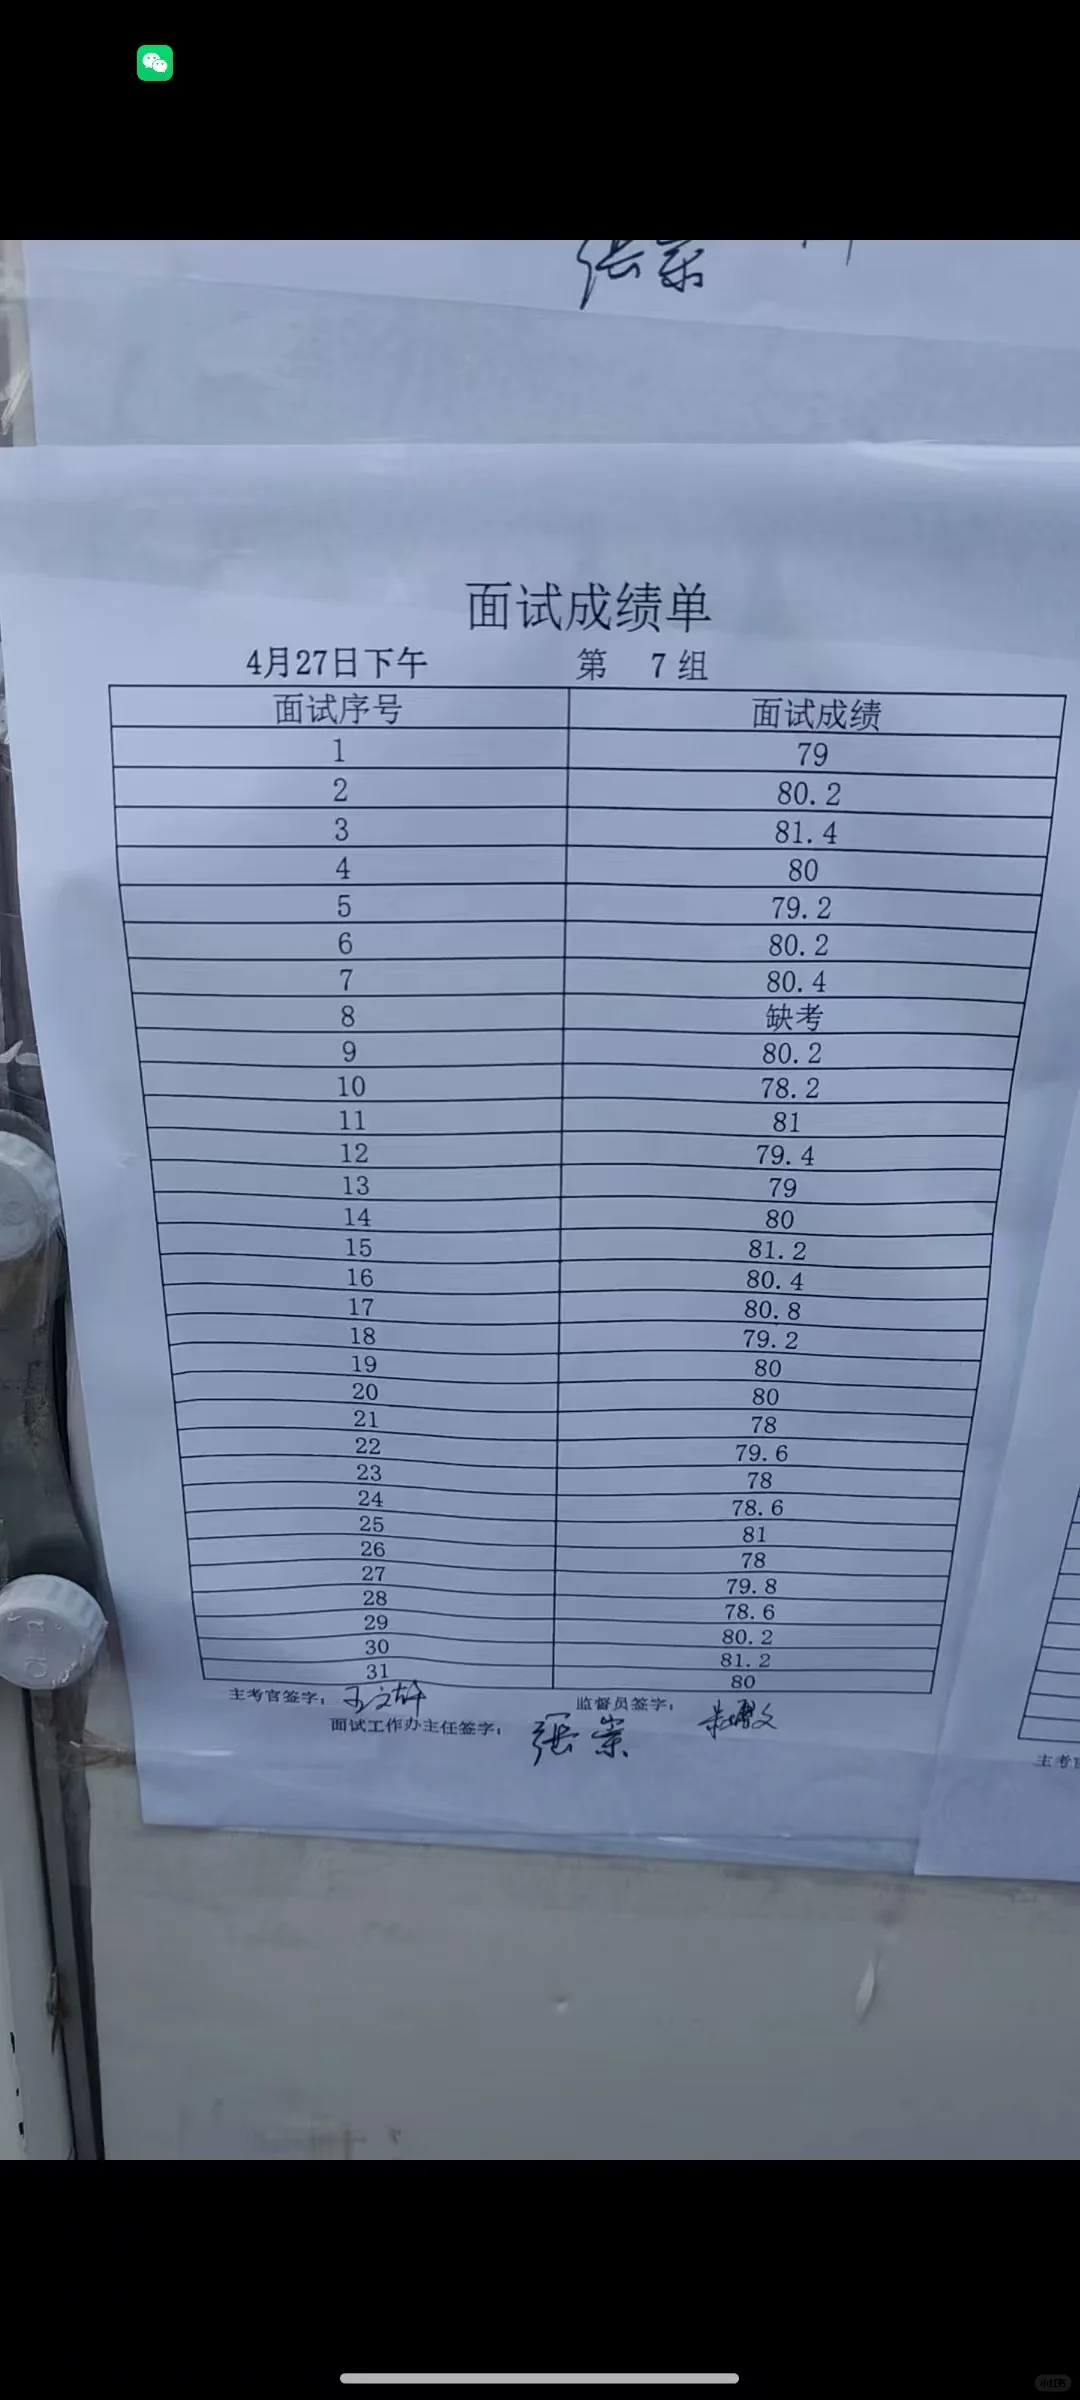 张崇
面试成绩单
4月27日下午 第 7 组
面试序号 面试成绩
1 79
2 80.2
3 81.4
4 80
5 79.2
6 80.2
7 80.4
8 缺考
9 80.2
10 78.2
11 81
12 79.4
13 79
14 80
15 81.2
16 80.4
17 80.8
18 79.2
19 80
20 80
21 78
22 79.6
23 78
24 78.6
25 81
26 78
27 79.8
28 78.6
29 80.2
30 81.2
31 80
主考官签字： 王文轩 监督员签字：
面试工作办主任签字： 张崇
主考官
小红书